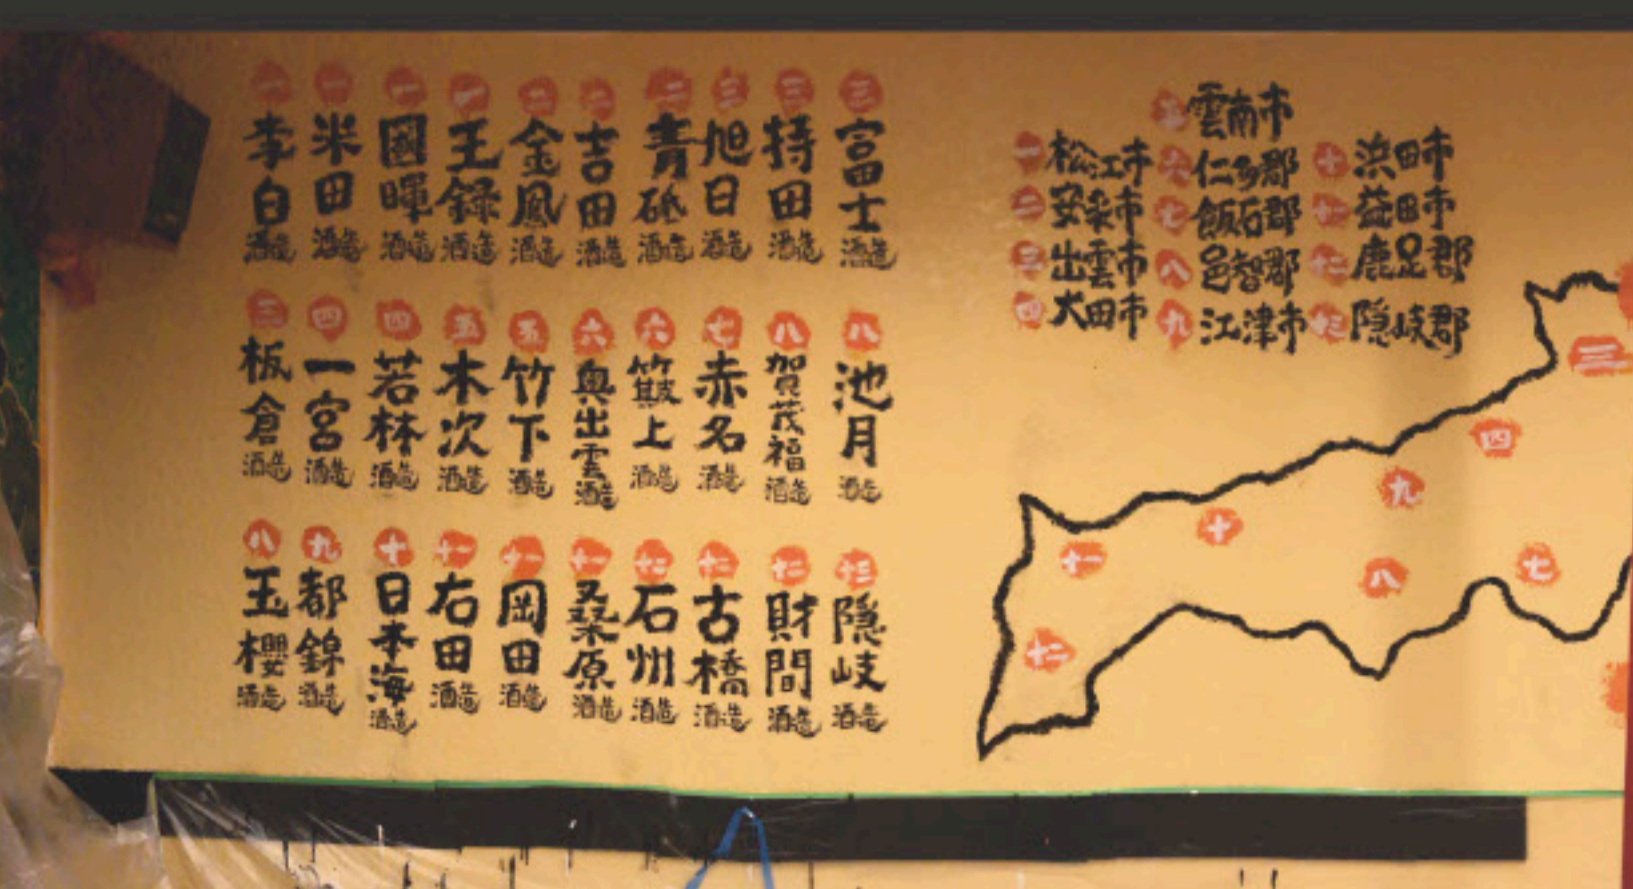 一 李白酒造
一 米田酒造
一 國暉酒造
一 王録酒造
二 金鳳酒造
二 吉田酒造
二 青砥酒造
三 旭日酒造
三 持田酒造
三 富士酒造
三 板倉酒造
四 一宮酒造
四 若林酒造
五 木次酒造
五 竹下酒造
六 奥出雲酒造
六 簸上酒造
七 赤名酒造
八 賀茂福酒造
八 池月酒造
八 玉櫻酒造
九 都錦酒造
十 日本海酒造
十一 右田酒造
十一 岡田酒造
十一 桑原酒造
十二 石州酒造
十二 古橋酒造
十二 財間酒造
十三 隠岐酒造
一 松江市
二 安来市
三 出雲市
四 大田市
五 雲南市
六 仁多郡
七 飯石郡
八 邑智郡
九 江津市
十 浜田市
十一 益田市
十二 鹿足郡
十三 隠岐郡
三
四
九
十
十一
八
七
十二